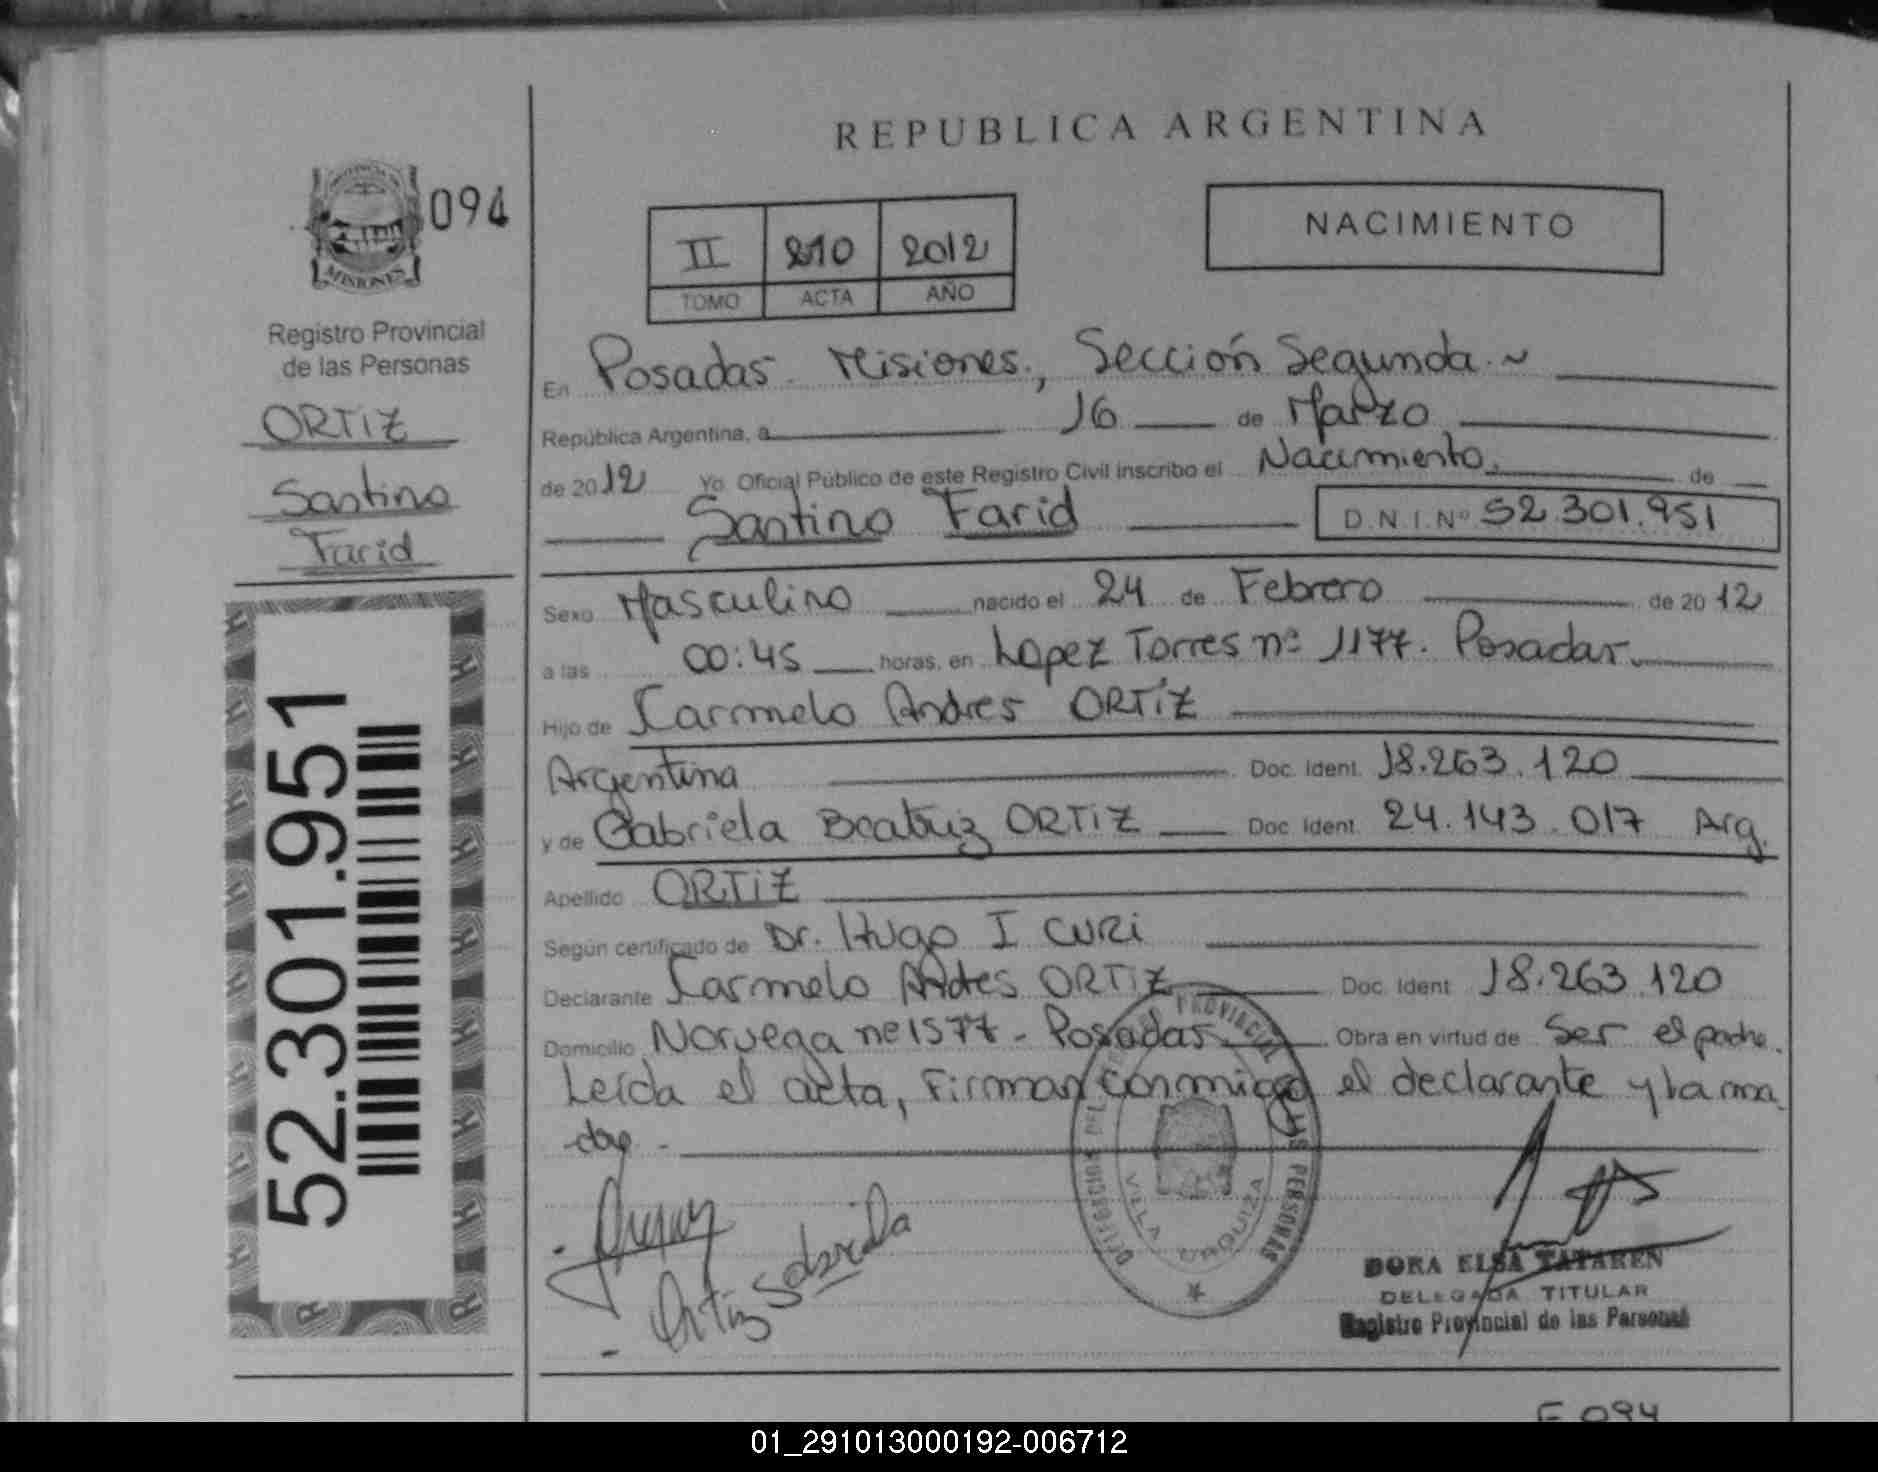 REPUBLICA ARGENTINA
094
MISIONES
Registro Provincial
de las Personas
ORTIZ
Santino
Farid
52.301.951
II 210 2012
TOMO ACTA AÑO
NACIMIENTO
En Posadas - Misiones, Sección Segunda.~
República Argentina, a 16 de Marzo
de 2012 Yo Oficial Público de este Registro Civil inscribo el Nacimiento, de
Santino Farid D.N.I.Nº 52.301.951
Sexo Masculino nacido el 24 de Febrero de 2012
a las 00:45 horas, en Lopez Torres nº 1177. Posadas.
Hijo de Carmelo Andres ORTIZ
Argentina Doc. Ident. 18.263.120
y de Gabriela Beatriz ORTIZ Doc. Ident. 24.143.017 Arg.
Apellido ORTIZ
Según certificado de Dr. Hugo I CURI
Declarante Carmelo Andres ORTIZ Doc. Ident 18.263.120
Domicilio Noruega nº 1577 - Posadas Obra en virtud de Ser el padre.
Leída el acta, Firman conmigo el declarante y la ma
dre -
PROVINCIAL DE LAS PERSONAS
VILLA URQUIZA
Ortiz
DORA ELSA TATAREN
DELEGADA TITULAR
Registro Provincial de las Personas
F 094
01_291013000192-006712